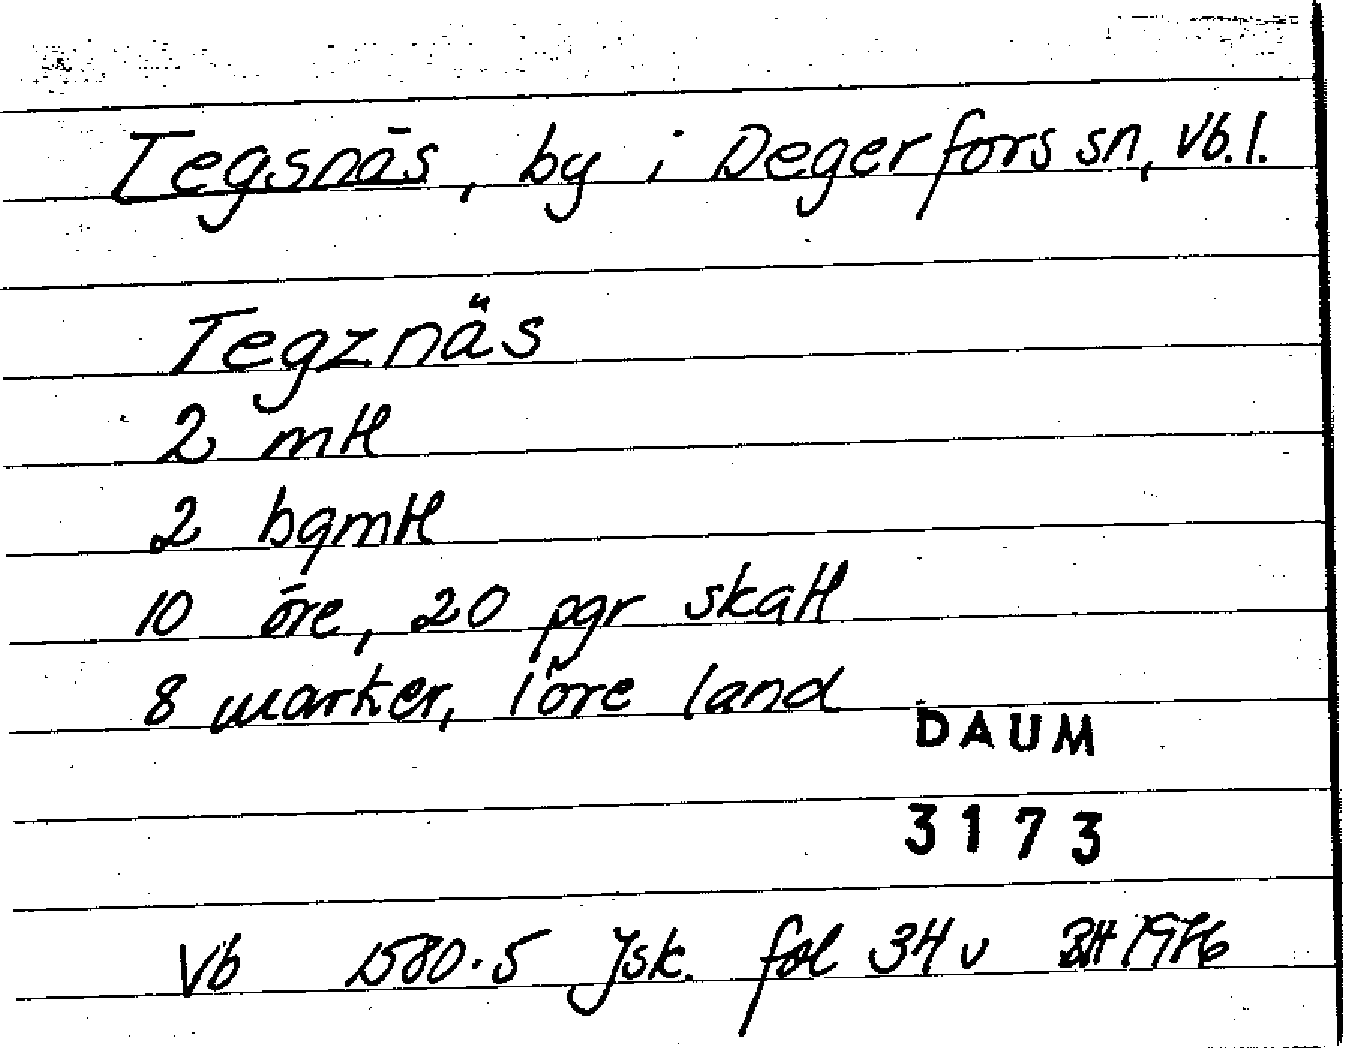 Tegsnäs, by i Degerfors sn, Vb.l.
Tegznäs
2 mtl
2 bgmtl
10 öre, 20 pgr skatt
8 marker, 1 öre land
DAUM
3173
Vb 1580.5 Jsk. fol 34 v BH 1976